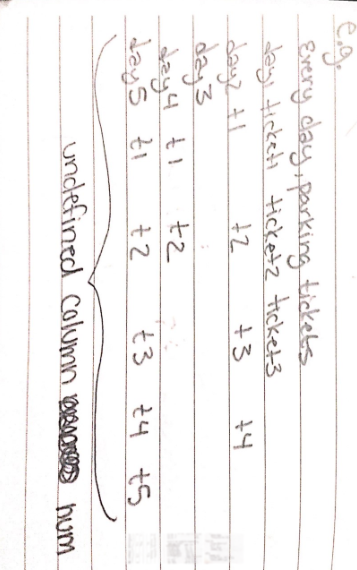 e.g.
Every day, parking tickets
day1 ticket1 ticket2 ticket3
day2 t1 t2 t3 t4
day3
day4 t1 t2
day5 t1 t2 t3 t4 t5
undefined column num